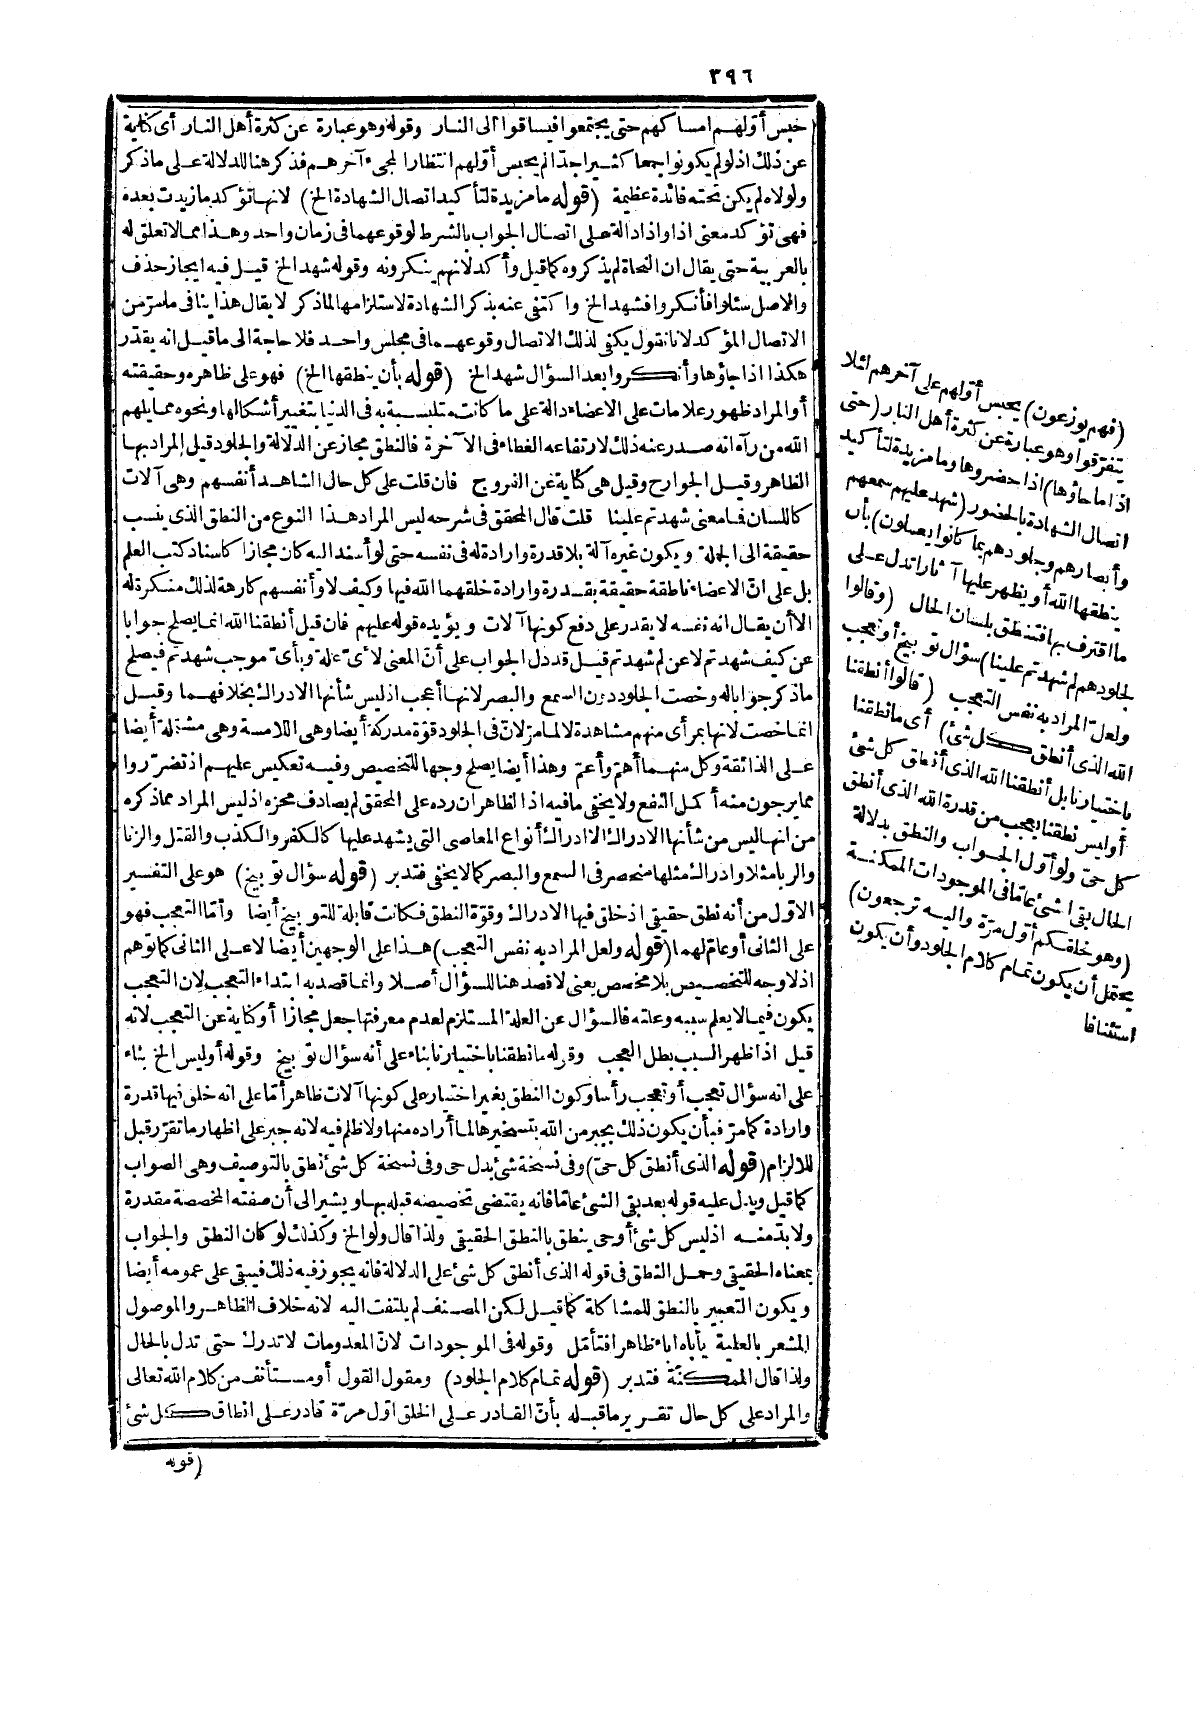 ٣٩٦
حبس أوّلهم امساكهم حتى يجتمعوا فيساقوا الى النار وقوله وهو عبارة عن كثرة أهل النار أى كناية
عن ذلك اذلولم يكونوا جمعا كثيرا جدّا لم يحبس أوّلهم انتظارا لمجىء آخرهم فذكر هنا للدلالة على ماذكر
ولولاه لم يكن تحته فائدة عظيمة (قوله مامزيدة لتأكيد اتصال الشهادة الخ) لانها تؤكد مازيدت بعده
فهى تؤكد معنى اذا واذا دالة على اتصال الجواب بالشرط لوقوعهما فى زمان واحد وهذا مما لا تعلق له
بالعربية حتى يقال ان النحاة لم يذكروه كما قيل وأكد لانهم ينكرونه وقوله شهد الخ قيل فيه ايجاز حذف
والاصل سئلوا فأنكروا فشهد الخ واكتفى عنه بذكر الشهادة لاستلزامها لماذكر لا يقال هذا ينافى مامرّ من
الاتصال المؤكد لانا نقول يكفى لذلك الاتصال وقوعهما فى مجلس واحد فلا حاجة الى ماقيل انه يقدّر
هكذا اذا جاؤها وأنكروا بعد السؤال شهد الخ (قوله بأن ينطقها الخ) فهو على ظاهره وحقيقته
أو المراد ظهور علامات على الاعضاء دالة على ما كانت متلبسة به فى الدنيا بتغيير أشكالها ونحوه مما يلهم
الله من رآه انه صدر عنه ذلك لارتفاعه الغطاء فى الآخرة فالنطق مجاز عن الدلالة والجلود قيل المراد بها
الظاهر وقيل الجوارح وقيل هى كناية عن الفروج فان قلت على كل حال الشاهد أنفسهم وهى آلات
كاللسان فما معنى شهدتم علينا قلت قال المحقق فى شرحه ليس المراد هذا النوع من النطق الذى ينسب
حقيقة الى الجملة ويكون غيره آلة بلا قدرة وارادة له فى نفسه حتى لو أسند اليه كان مجازا كاسناد كتب القلم
بل على انّ الاعضاء ناطقة حقيقة بقدرة وارادة خلقهما الله فيها وكيف لا وأنفسهم كارهة لذلك منكرة له
الا أن يقال انه نفسه لا يقدر على دفع كونها آلات ويؤيده قوله عليهم فان قيل أنطقنا الله انما يصلح جوابا
عن كيف شهدتم لا عن لم شهدتم قيل قد دل الجواب على أنّ المعنى لاىّ علة وبأىّ موجب شهدتم فيصلح
ماذكر جوابا له وخصت الجلود دون السمع والبصر لانها أعجب اذ ليس شأنها الادراك بخلافهما وقيل
انما خصت لانها بمرأى منهم مشاهدة لا لما مرّ لان فى الجلود قوّة مدركة أيضا وهى اللامسة وهى مشتملة أيضا
على الذائقة وكل منهما أهمّ وأعمّ وهذا أيضا يصلح وجها للتخصيص وفيه تعكيس عليهم اذ تضرّروا
مما يرجون منه أكمل النفع ولا يخفى مافيه اذ الظاهر ان رده على المحقق لم يصادف محزه اذ ليس المراد مماذكره
من انها ليس من شأنها الادراك الا ادراك أنواع المعاصى التى يشهد عليها كالكفر والكذب والقتل والزنا
والربا مثلا وادراك مثلها منحصر فى السمع والبصر كما لا يخفى فتدبر (قوله سؤال توبيخ) هو على التفسير
الاوّل من أنه نطق حقيقى اذ خلق فيها الادراك وقوّة النطق فكانت قابلة للتوبيخ أيضا وأمّا التعجب فهو
على الثانى أو عامّ لهما (قوله ولعل المراد به نفس التعجب) هذا على الوجهين أيضا لا على الثانى كما توهم
اذ لا وجه للتخصيص بلا مخصص يعنى لا قصد هنا للسؤال أصلا وانما قصد به ابتداء التعجب لان التعجب
يكون فيما لا يعلم سببه وعلته فالسؤال عن العلة المستلزم لعدم معرفتها جعل مجازا أو كناية عن التعجب لانه
قيل اذا ظهر السبب بطل العجب وقوله مانطقنا باختيارنا بناء على أنه سؤال توبيخ وقوله أوليس الخ بناء
على انه سؤال تعجب أو تعجب رأسا وكون النطق بغير اختيار على كونها آلات ظاهر أمّا على انه خلق فيها قدرة
وارادة كما مرّ فبأن يكون ذلك بجبر من الله بتسخيرها لما أراده منها ولا ظلم فيه لانه جبر على اظهار ماتقرّر قبل
للالزام (قوله الذى أنطق كل حىّ) وفى نسخة شئ بدل حى وفى نسخة كل شئ نطق بالتوصيف وهى الصواب
كما قيل ويدل عليه قوله بعد بقى الشئ عامّا فانه يقتضى تخصيصه قبله بها ويشير الى أن صفته المخصصة مقدرة
ولا بدّ منه اذ ليس كل شئ أو حى ينطق بالنطق الحقيقى ولذا قال ولو الخ وكذلك لو كان النطق والجواب
بمعناه الحقيقى وحمل النطق فى قوله الذى أنطق كل شئ على الدلالة فانه يجوز فيه ذلك فيبقى على عمومه أيضا
ويكون التعبير بالنطق للمشاكلة كما قيل لكن المصنف لم يلتفت اليه لانه خلاف الظاهر والموصول
المشعر بالعلية يأباه اباء ظاهرا فتأمّل وقوله فى الموجودات لانّ المعدومات لا تدرك حتى تدل بالحال
ولذا قال الممكنة فتدبر (قوله تمام كلام الجلود) ومقول القول أو مستأنف من كلام الله تعالى
والمراد على كل حال تقرير ماقبله بأنّ القادر على الخلق اوّل مرّة قادر على انطاق كل شئ
(قوله
(فهم يوزعون) يحبس أوّلهم على آخرهم لئلا
يتفرّقوا وهو عبارة عن كثرة أهل النار (حتى
اذا ماجاؤها) اذا حضروها وما مزيدة لتأكيد
اتصال الشهادة بالحضور (شهد عليهم سمعهم
وأبصارهم وجلودهم بما كانوا يعملون) بأن
ينطقها الله أو يظهر عليها آثارا تدل على
ما اقترف بها فتنطق بلسان الحال (وقالوا
لجلودهم لم شهدتم علينا) سؤال توبيخ أو تعجب
ولعل المراد به نفس التعجب (قالوا أنطقنا
الله الذى أنطق كل شئ) أى مانطقنا
باختيارنا بل أنطقنا الله الذى أنطق كل شئ
أوليس نطقنا بعجب من قدرة الله الذى أنطق
كل حىّ ولو أوّل الجواب والنطق بدلالة
الحال بقى الشئ عامّا فى الموجودات الممكنة
(وهو خلقكم أوّل مرّة واليه ترجعون)
يحتمل أن يكون تمام كلام الجلود وأن يكون
استئنافا